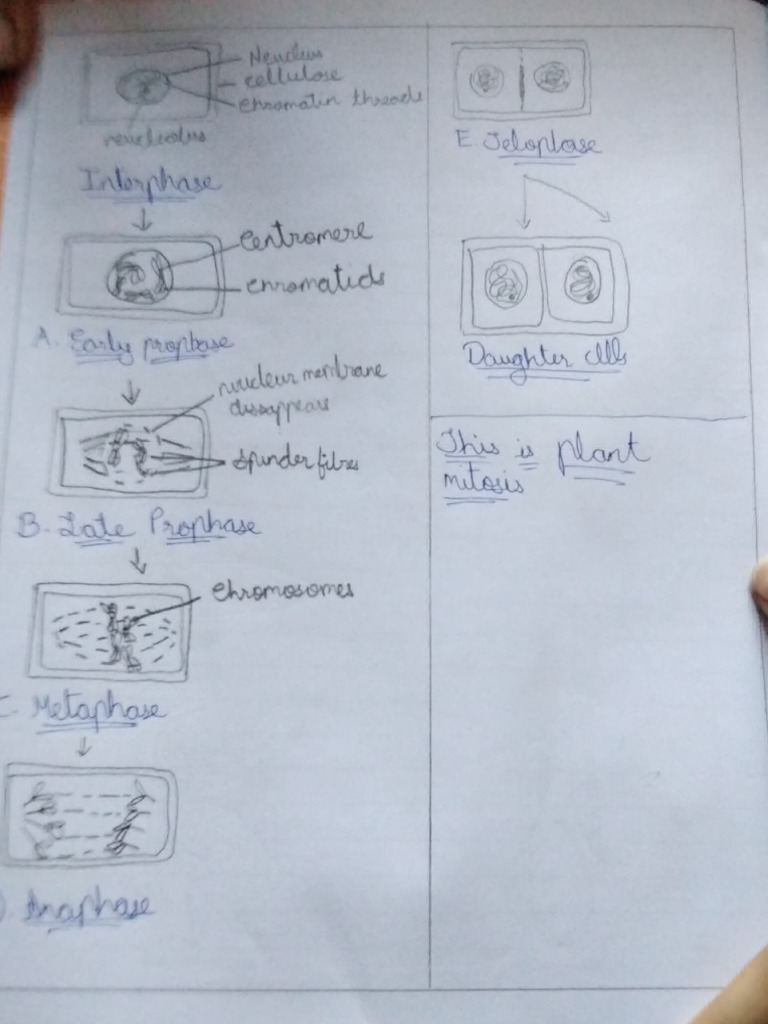 Neucleus
cellulose
chromatin threads
neucleolus
Interphase
centromere
chromatids
A. Early prophase
nucleur membrane
dissappears
Spinder fibres
B. Late Prophase
Chromosomes
C. Metaphase
D. Anaphase
E. Telophase
Daughter cells
This is plant
mitosis